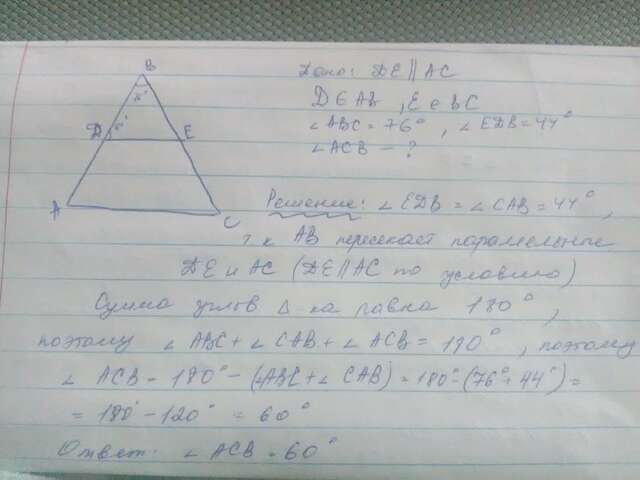 B
D
E
A
C
Дано: DE || AC
D ∈ AB, E ∈ BC
∠ABC = 76°, ∠EDB = 44°
∠ACB - ?
Решение: ∠EDB = ∠CAB = 44°,
т.к AB пересекает параллельные
DE и AC (DE || AC по условию)
Сумма углов Δ-ка равна 180°,
поэтому ∠ABC + ∠CAB + ∠ACB = 180°, поэтому
∠ACB = 180° - (∠ABC + ∠CAB) = 180° - (76° + 44°) =
= 180° - 120° = 60°
Ответ: ∠ACB = 60°